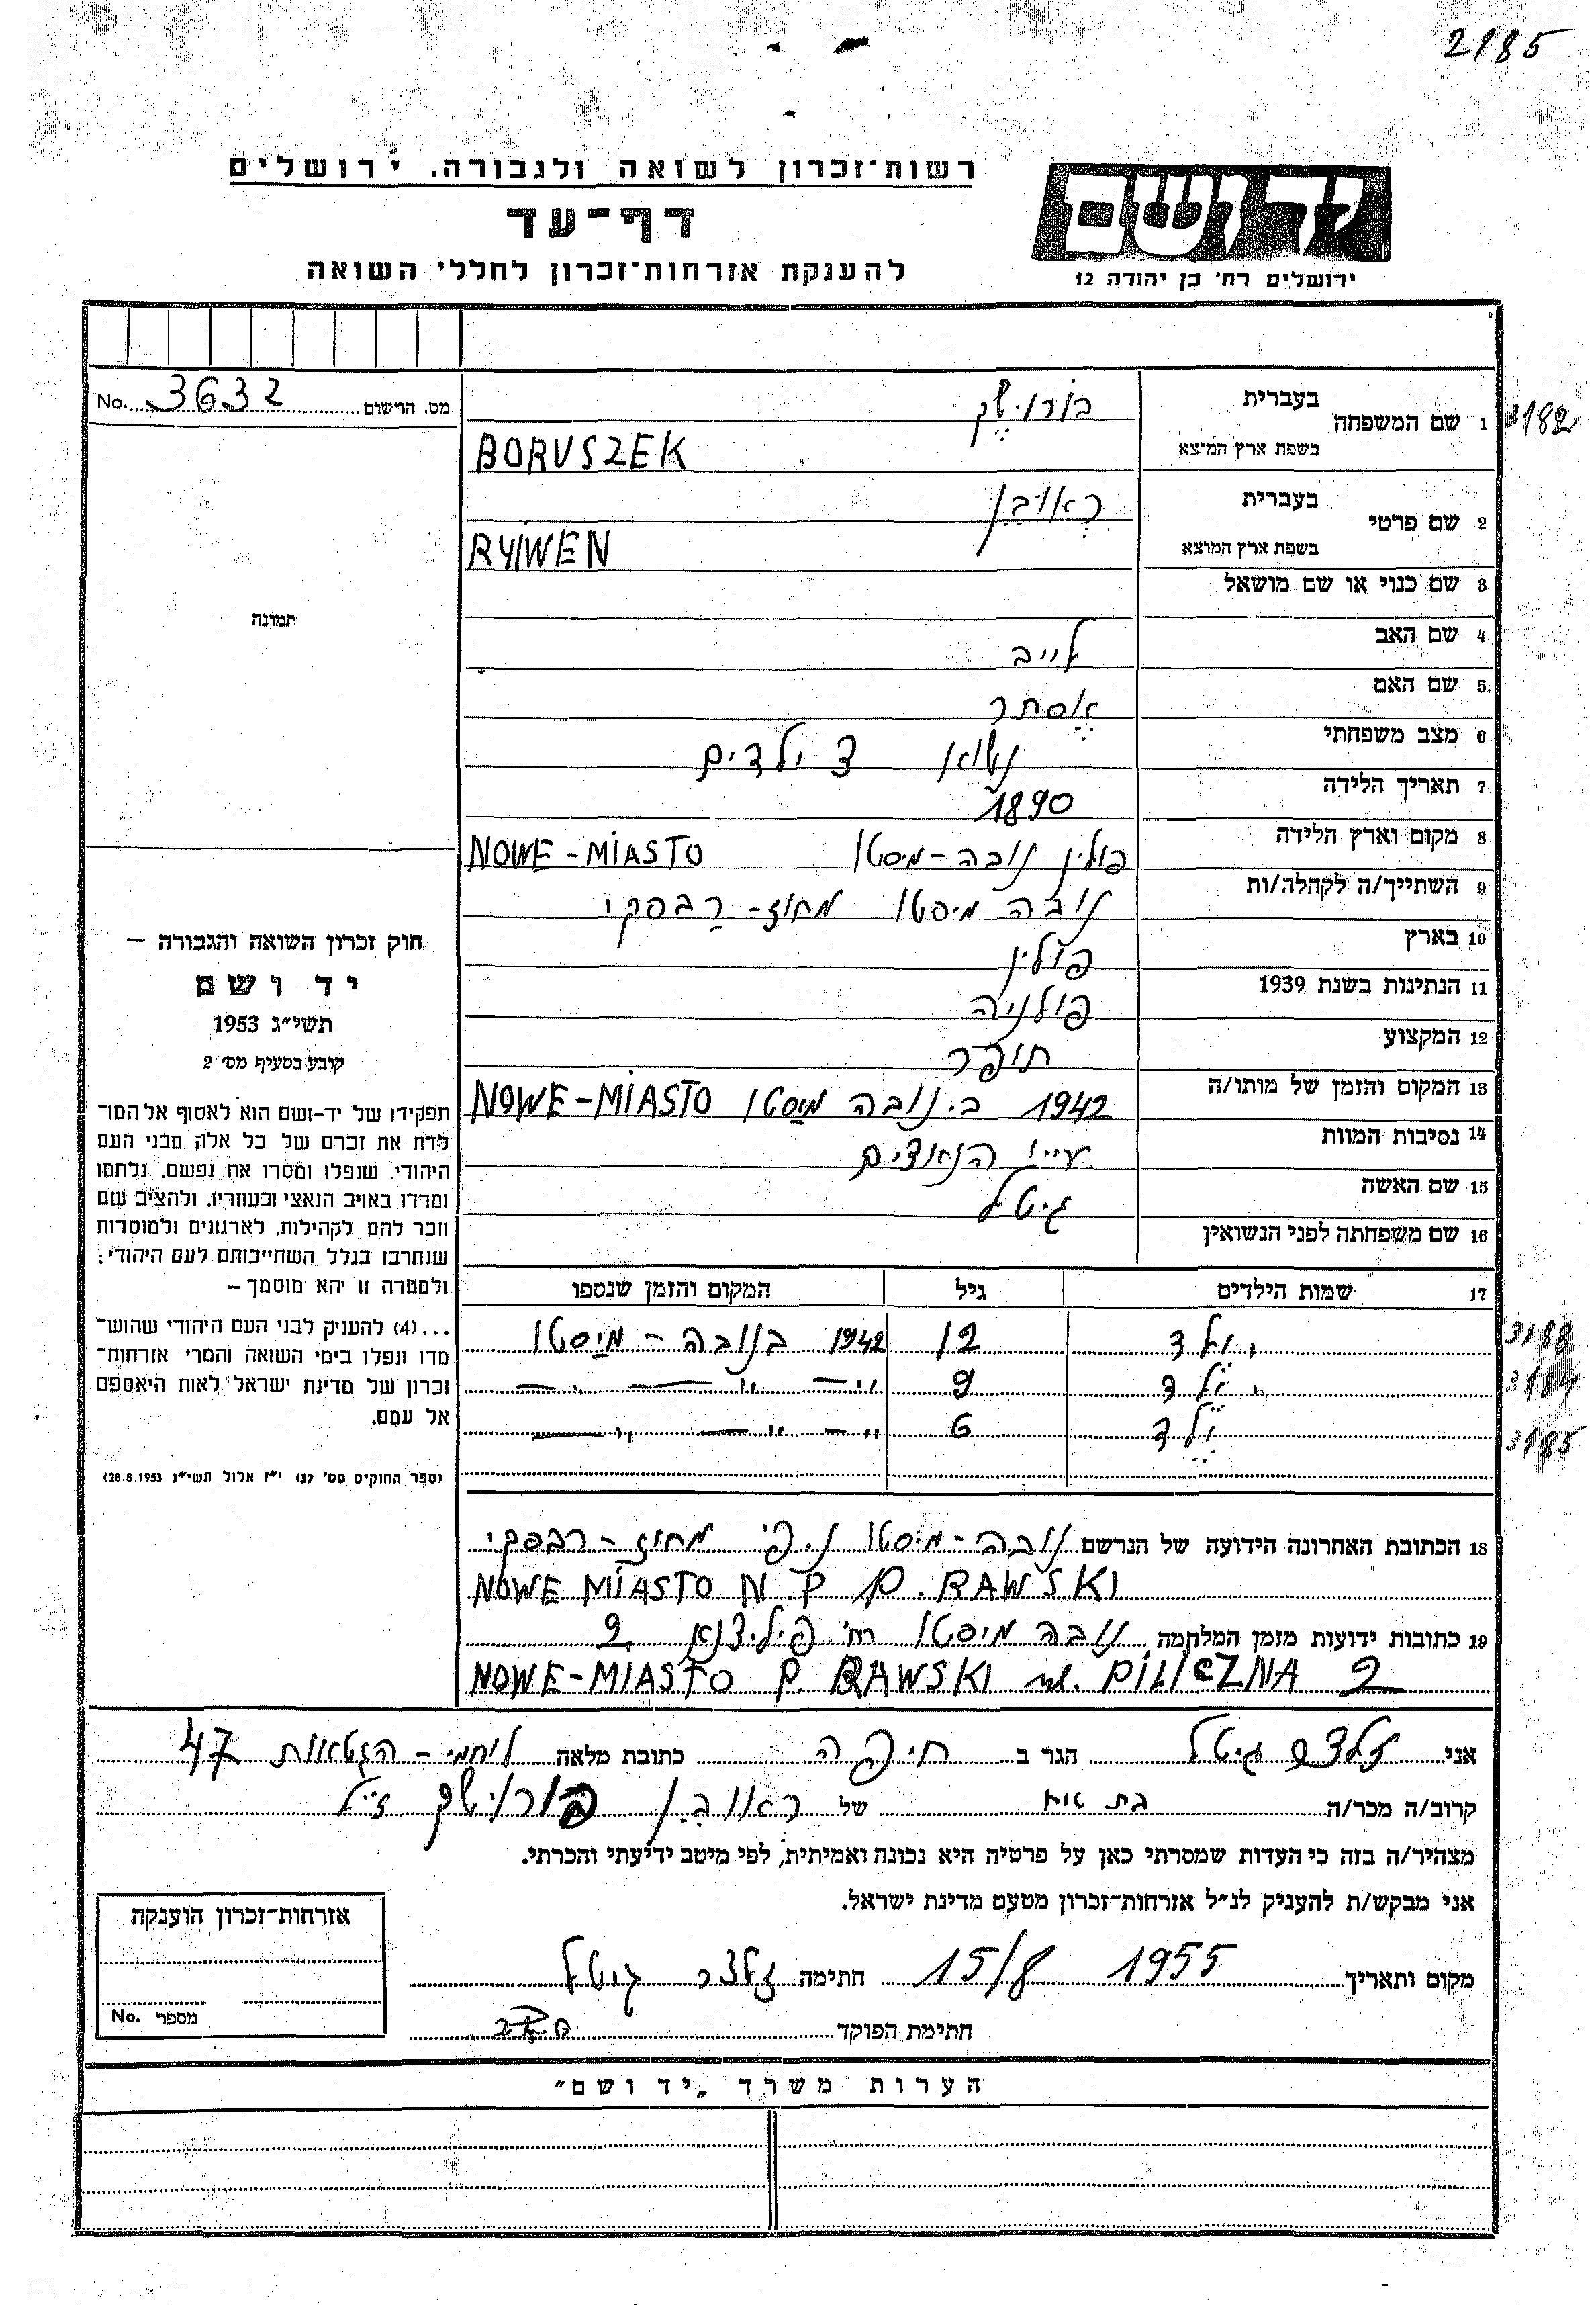 2185
רשות־זכרון לשואה ולגבורה, ירושלים
יד ושם
דף־עד
להענקת אזרחות־זכרון לחללי השואה
ירושלים רח' בן יהודה 12
מס. הרשום 3632 No.
1 שם המשפחה בעברית בורושק 3182
בשפת ארץ המוצא BORUSZEK
2 שם פרטי בעברית ראובן
בשפת ארץ המוצא RYWEN
3 שם כנוי או שם מושאל
תמונה
4 שם האב לייב
5 שם האם אסתר
6 מצב משפחתי נשוא 3 ילדים
7 תאריך הלידה 1890
8 מקום וארץ הלידה פולין נובה-מיסטו NOWE-MIASTO
9 השתייך/ה לקהלה/ות נובה מיסטו מחוז-רבסקי
10 בארץ פולין
11 הנתינות בשנת 1939 פולניה
12 המקצוע תופר
13 המקום והזמן של מותו/ה 1942 ב. נובה מיסטו NOWE-MIASTO
14 נסיבות המוות ע״י הנאצים
15 שם האשה גיטל
16 שם משפחתה לפני הנשואין
17 שמות הילדים גיל המקום והזמן שנספו
ילד 12 1942 בנובה-מיסטו 3183
ילד 9 -״- -״- 3184
ילד 6 -״- -״- 3185
חוק זכרון השואה והגבורה –
יד ושם
תשי״ג 1953
קובע בסעיף מס' 2
תפקידו של יד-ושם הוא לאסוף אל המו־
לדת את זכרם של כל אלה מבני העם
היהודי, שנפלו ומסרו את נפשם, נלחמו
ומרדו באויב הנאצי ובעוזריו, ולהציב שם
וזכר להם לקהילות, לארגונים ולמוסדות
שנחרבו בגלל השתייכותם לעם היהודי;
ולמטרה זו יהא מוסמך –
...(4) להעניק לבני העם היהודי שהוש־
מדו ונפלו בימי השואה והמרי אזרחות־
זכרון של מדינת ישראל לאות היאספם
אל עמם.
(ספר החוקים מס' 132 י״ז אלול תשי״ג 28.8.1953)
18 הכתובת האחרונה הידועה של הנרשם נובה-מיסטו נ.פ. מחוז-רבסקי
NOWE MIASTO N.P P.RAWSKI
19 כתובות ידועות מזמן המלחמה נובה מיסטו רח' פיליצנא 2
NOWE-MIASTO P. RAWSKI ul. PILICZNA 2
אני זלצר גיטל הגר ב חיפה כתובת מלאה לוחמי-הגטאות 47
קרוב/ה מכר/ה בת אח של ראובן בורושק ז״ל
מצהיר/ה בזה כי העדות שמסרתי כאן על פרטיה היא נכונה ואמיתית, לפי מיטב ידיעתי והכרתי.
אני מבקש/ת להעניק לנ״ל אזרחות־זכרון מטעם מדינת ישראל.
מקום ותאריך 1955 15/8 חתימה זלצר גיטל
חתימת הפוקד
אזרחות־זכרון הוענקה
מספר No.
הערות משרד „יד ושם״